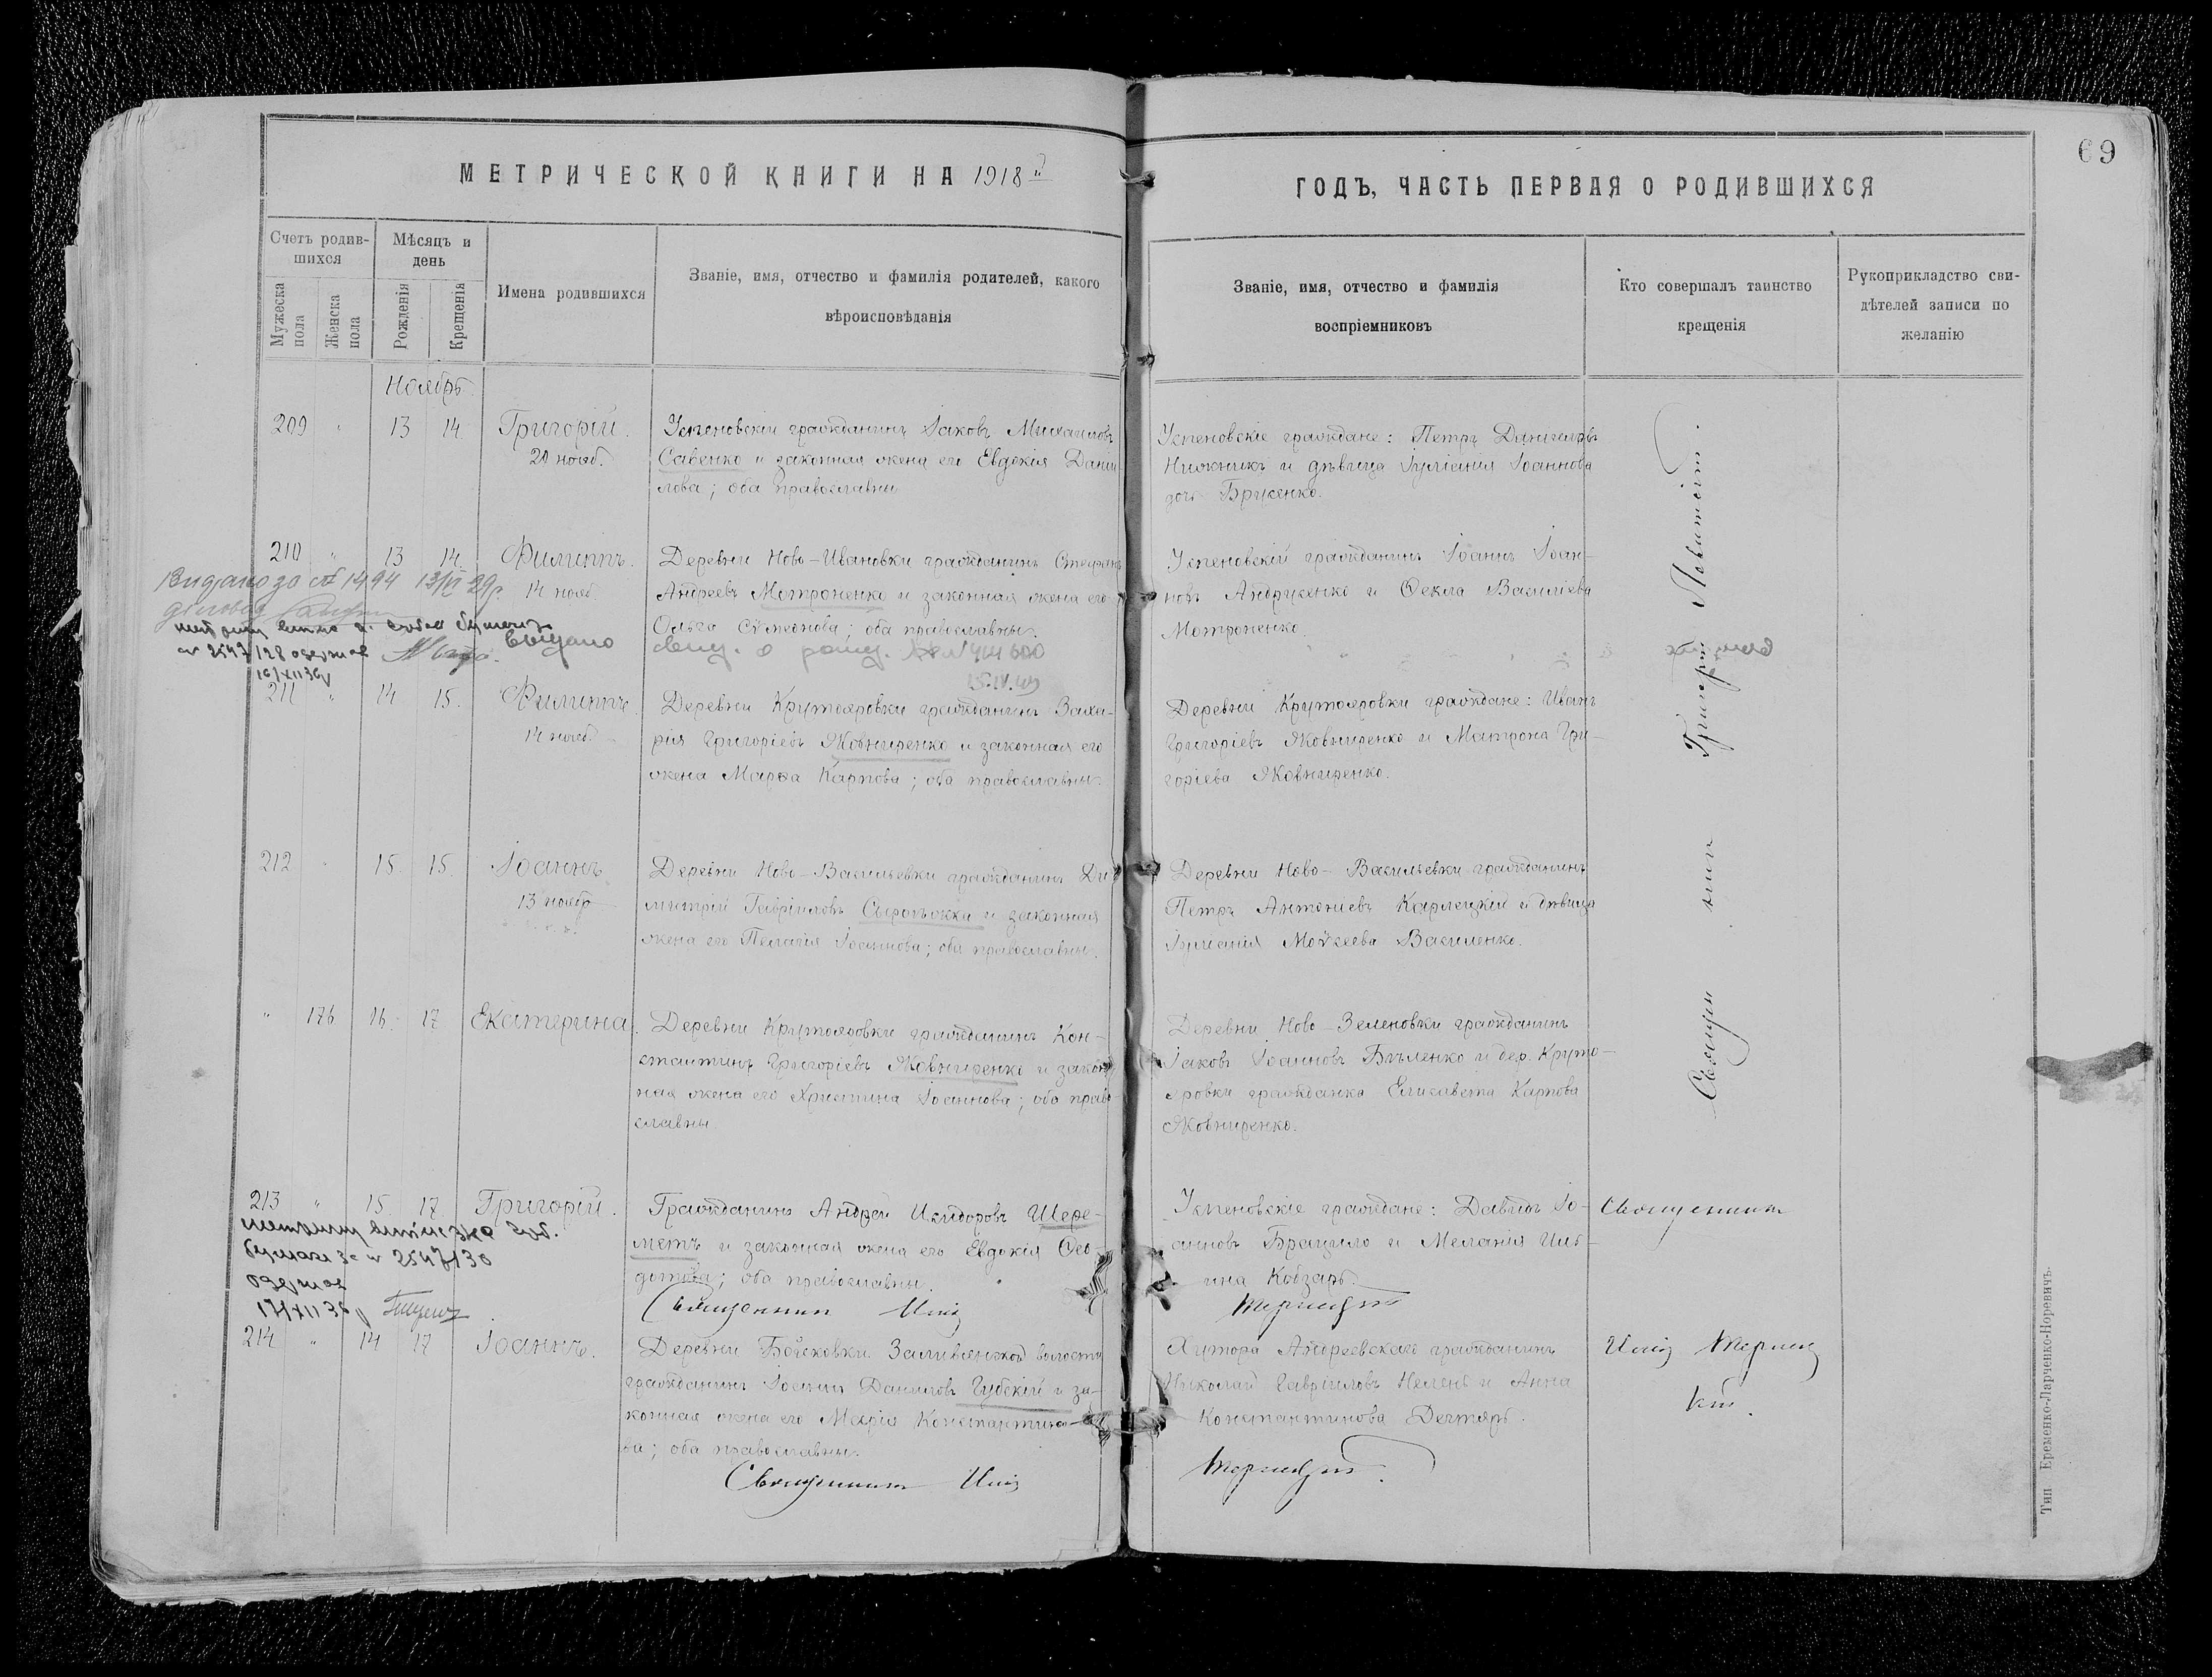 МЕТРИЧЕСКОЙ КНИГИ НА 1918й
ГОДЪ, ЧАСТЬ ПЕРВАЯ О РОДИВШИХСЯ
69
Счетъ родив-
шихся
Мужеска
пола
Женска
пола
Мѣсяцъ и
день
Рожденія
Крещенія
Имена родившихся
Званіе, имя, отчество и фамилія родителей, какого
вѣроисповѣданія
Званіе, имя, отчество и фамилія
воспріемниковъ
Кто совершалъ таинство
крещенія
Рукоприкладство сви-
дѣтелей записи по
желанію
Ноябрь
209 " 13 14 Григорій.
20 нояб.
Успеновскій гражданинъ Іаковъ Михаиловъ
Савенко и законная жена его Евдокія Дани-
лова; оба православны
Успеновскіе граждане: Петръ
Нижникъ и дѣвица Іуліанія Іоаннова
дочь Брусенко.
210 " 13 14 Филиппъ.
14 нояб.
Деревни Ново-Ивановки гражданинъ Стефанъ
Андреевъ Мотроненко и законная жена его
Ольга Сѵмеонова; оба православны.
Успеновскій гражданинъ Іоаннъ Іоан-
новъ Андрусенко и Ѳекла Василіева
Мотроненко.
Видано за № 1494 13/VI 29р.
Выдано свид. о рожд. 404600
15.IV.49
211 " 14 15. Филиппъ
14 нояб.
Деревни Крутояровки гражданинъ Заха-
рія Григоріевъ Жовниренко и законная его
жена Марѳа Карпова; оба православны.
Деревни Крутояровки граждане: Иванъ
Григоріевъ Жовниренко и Матрона Гри-
горіева Жовниренко.
212 " 15. 15. Іоаннъ
13 нояб
Деревни Ново-Васильевки гражданинъ Ди-
митрій Гавріиловъ и законная
жена его Пелагія Іоаннова; оба православны.
Деревни Ново-Васильевки гражданинъ
Петръ Антоніевъ Карлецкій и дѣвица
Іуліанія Моѵсеева Василенко.
" 176 16. 17 Екатерина.
Деревни Крутояровки гражданинъ Кон-
стантинъ Григоріевъ Жовниренко и закон-
ная жена его Христина Іоаннова; оба право-
славны
Деревни Ново-Зеленовки гражданинъ
Іаковъ Іоанновъ Бѣленко и дер. Круто-
яровки гражданка Елисавета Карпова
Жовниренко.
Григорій Левитскій.
213 " 15. 17. Григорій.
Гражданинъ Андрей Исидоровъ Шере-
метъ и законная жена его Евдокія Ѳео-
дотова; оба православны.
Священникъ
Успеновскіе граждане: Давидъ Іо-
анновъ и Меланія Или-
ина Кобзарь.
Священникъ
17/XII 30
214 " 14 17 Іоаннъ.
гражданинъ Іоаннъ Даниловъ Губскій и за-
конная жена его Марія Константино-
ва; оба православны.
Священникъ
Хутора Андреевскаго гражданинъ
Николай Гавріиловъ и Анна
Константинова Дегтярь.
Тип. Еременко-Ларченко-Норевичъ.